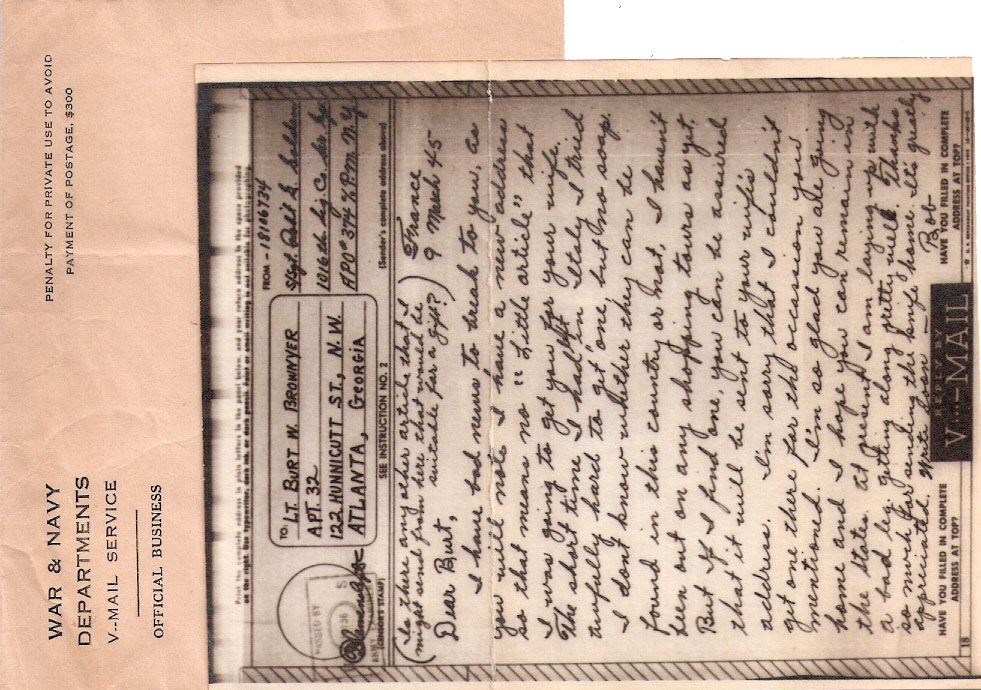 WAR & NAVY
DEPARTMENTS
V--MAIL SERVICE
OFFICIAL BUSINESS
PENALTY FOR PRIVATE USE TO AVOID
PAYMENT OF POSTAGE, $300
Print the complete address in plain letters in the panel below, and your return address in the space provided
on the right. Use typewriter, dark ink, or dark pencil. Faint or small writing is not suitable for photographing.
PASSED BY
(CENSOR'S STAMP)
TO:
LT. BURT W. BROWNYER
APT. 32
122 HUNNICUTT ST., N.W.
ATLANTA, GEORGIA
SEE INSTRUCTION NO. 2
FROM - 18106734
SSgt.
1016th Sig Co.
APO # 374 % P.m. N.Y.
(Sender's complete address above)
(Is there any other article that I
might send from here that would be
suitable for a gift?)
France
9 March 45
Dear Burt,
I have bad news to break to you, as
you will note I have a new address
so that means no "Little article" that
I was going to get you for your wife.
The short time I had left in Italy I tried
awfully hard to get one but no soap.
I don't know whether they can be
found in this country or not, I haven't
been out on any shopping tours as yet.
But if I find one, you can be assured
that it will be sent to your wife's
address. I'm sorry that I couldn't
get one there for the occassion you
mentioned. I'm so glad you are going
home and I hope you can remain in
the states. At present I am laying up with
a bad leg, getting along pretty well. Thanks
so much for sending the knife home. It's greatly
appreciated. Write soon —
Bob
HAVE YOU FILLED IN COMPLETE
ADDRESS AT TOP?
REPLY BY
V...-MAIL
HAVE YOU FILLED IN COMPLETE
ADDRESS AT TOP?